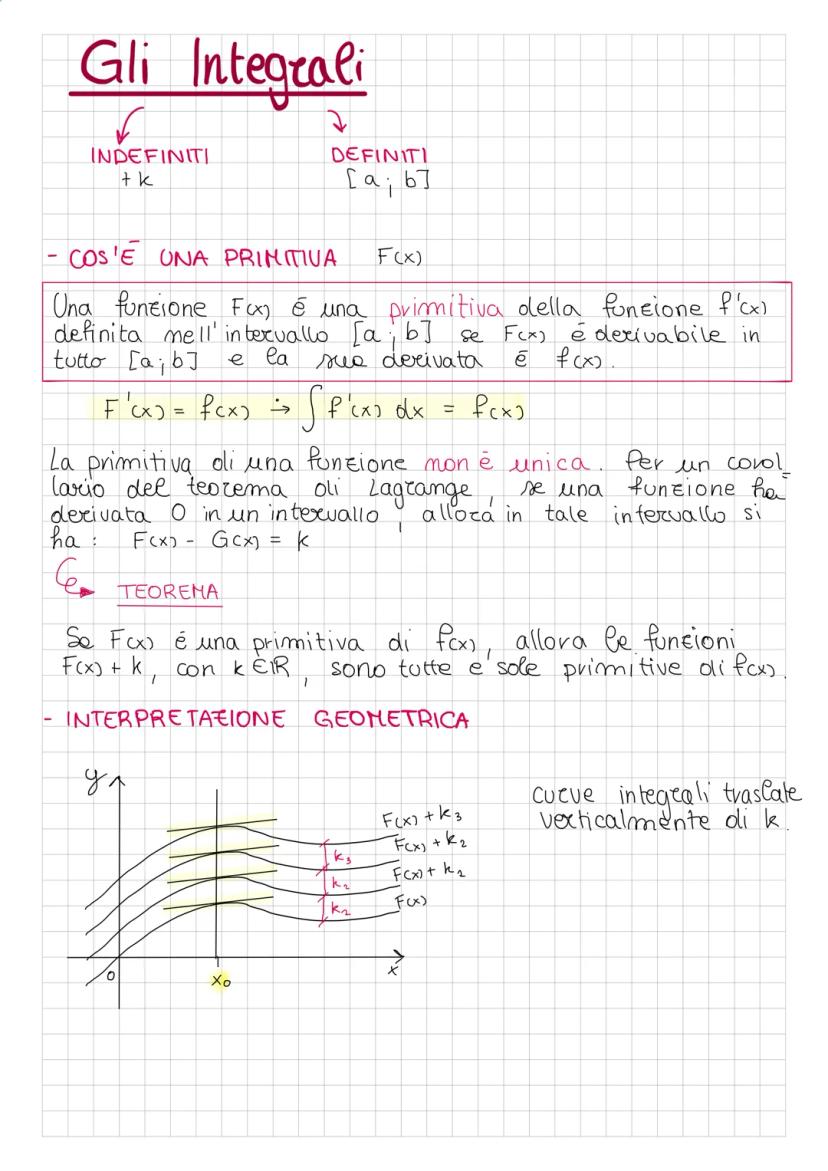 Gli Integrali
INDEFINITI
DEFINITI
+ k
[a ; b]
- COS'È UNA PRIMITIVA F(x)
Una funzione F(x) é una primitiva della funzione f'(x)
definita nell'intervallo [a ; b] se F(x) é derivabile in
tutto [a ; b] e la sua derivata é f(x).
F'(x) = f(x) ⇒ ∫ f'(x) dx = f(x)
La primitiva di una funzione non é unica. Per un corol_
lario del teorema di Lagrange, se una funzione ha
derivata 0 in un intervallo, allora in tale intervallo si
ha : F(x) - G(x) = k
TEOREMA
Se F(x) é una primitiva di f(x), allora le funzioni
F(x) + k, con k ∈ ℝ, sono tutte e sole primitive di f(x).
- INTERPRETAZIONE GEOMETRICA
y
curve integrali traslate
verticalmente di k.
F(x) + k₃
F(x) + k₂
k₃
F(x) + k₂
k₂
F(x)
k₂
0
x₀
x